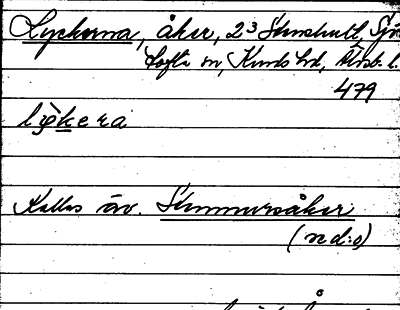 Lyckorna, åker, 2³ Stenshult, Sjö-
tofta sn, Kinds hd, Älvsb. l.
479
lỳkera
Kallas äv. Stommersåker
(n d:o)